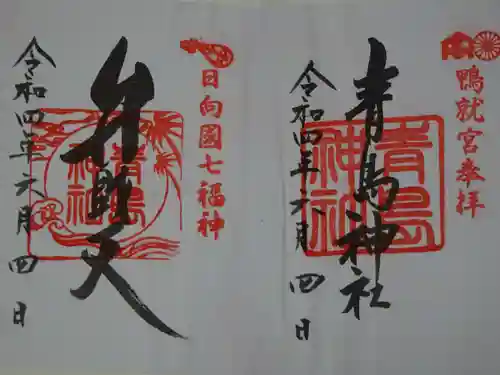 鴨就宮奉拝
青島神社
青島神社
令和四年六月四日
日向國七福神
弁財天
青島神社
令和四年六月四日